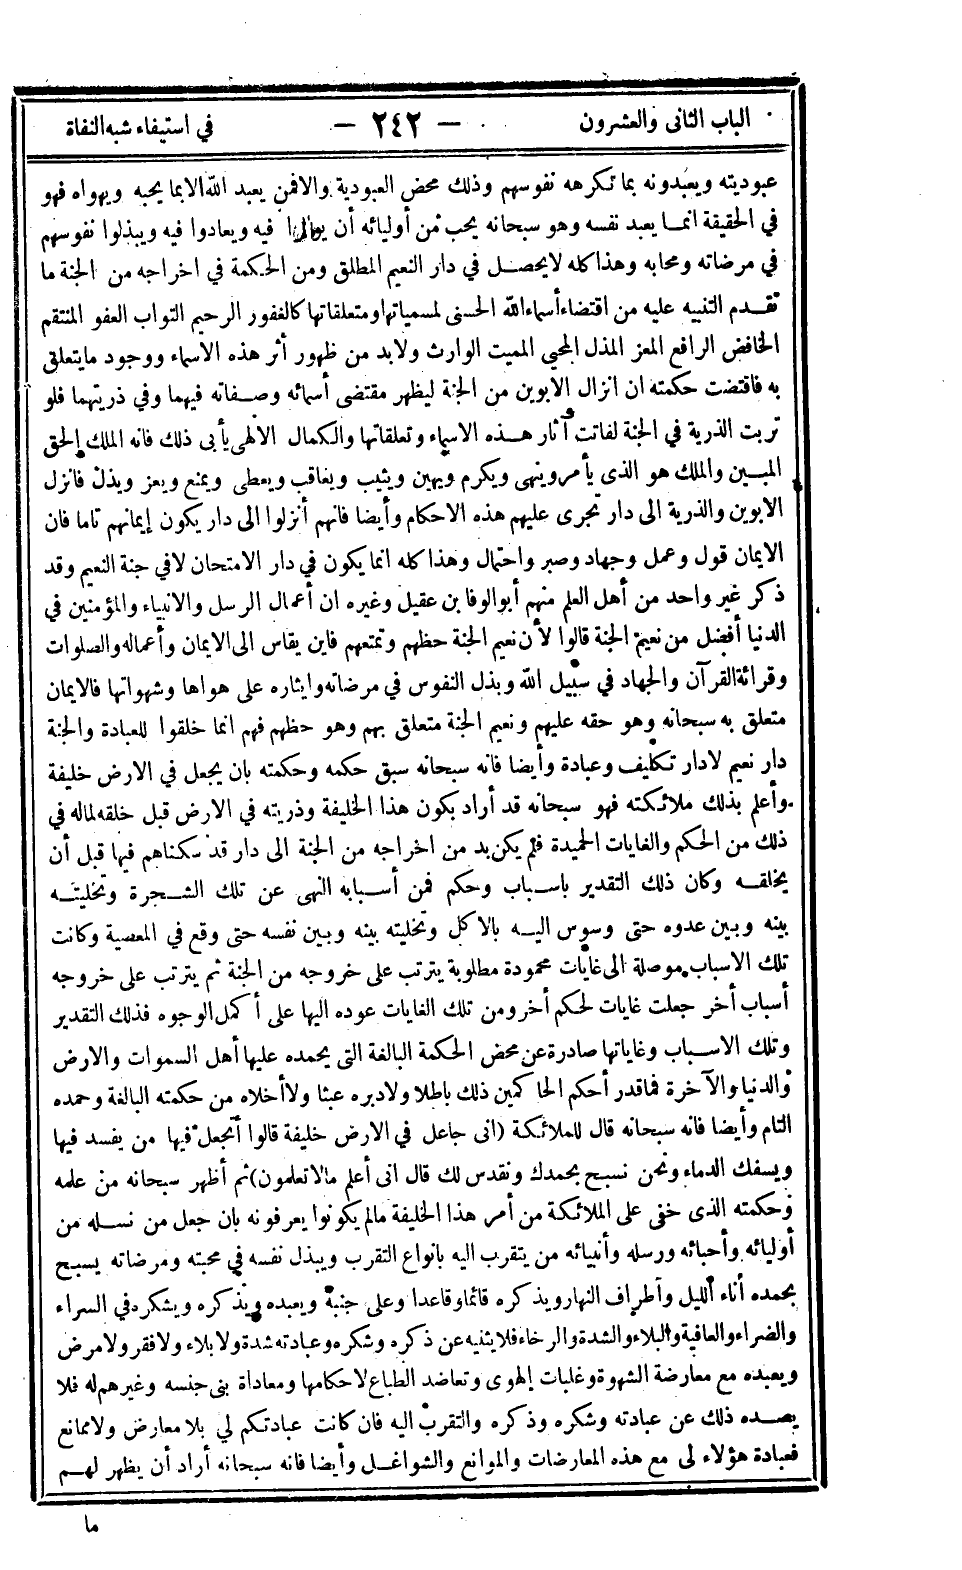 الباب الثانى والعشرون — ٢٤٢ — في استيفاء شبه النفاة
عبوديته ويعبدونه بما تكرهه نفوسهم وذلك محض العبودية والافمن يعبد الله الا بما يحبه ويهواه فهو
في الحقيقة انما يعبد نفسه وهو سبحانه يحب من أوليائه أن يوالوا فيه ويعادوا فيه ويبذلوا نفوسهم
في مرضاته ومحابه وهذا كله لا يحصل في دار النعيم المطلق ومن الحكمة في اخراجه من الجنة ما
تقدم التنبيه عليه من اقتضاء أسماء الله الحسنى لمسمياتها ومتعلقاتها كالغفور الرحيم التواب العفو المنتقم
الخافض الرافع المعز المذل المحيي المميت الوارث ولابد من ظهور أثر هذه الاسماء ووجود ما يتعلق
به فاقتضت حكمته ان انزال الابوين من الجنة ليظهر مقتضى أسمائه وصفاته فيهما وفي ذريتهما فلو
تربت الذرية في الجنة لفاتت آثار هذه الاسماء وتعلقاتها والكمال الالهي يأبى ذلك فانه الملك الحق
المبين والملك هو الذى يأمر وينهى ويكرم ويهين ويثيب ويعاقب ويعطى ويمنع ويعز ويذل فانزل
الابوين والذرية الى دار تجرى عليهم هذه الاحكام وأيضا فانهم أنزلوا الى دار يكون إيمانهم تاما فان
الايمان قول وعمل وجهاد وصبر واحتمال وهذا كله انما يكون في دار الامتحان لا في جنة النعيم وقد
ذكر غير واحد من أهل العلم منهم أبو الوفا بن عقيل وغيره ان أعمال الرسل والانبياء والمؤمنين في
الدنيا أفضل من نعيم الجنة قالوا لأن نعيم الجنة حظهم وتمتعهم فاين يقاس الى الايمان وأعماله والصلوات
وقرائة القرآن والجهاد في سبيل الله وبذل النفوس في مرضاته وايثاره على هواها وشهواتها فالايمان
متعلق به سبحانه وهو حقه عليهم ونعيم الجنة متعلق بهم وهو حظهم فهم انما خلقوا للعبادة والجنة
دار نعيم لا دار تكليف وعبادة وأيضا فانه سبحانه سبق حكمه وحكمته بان يجعل في الارض خليفة
وأعلم بذلك ملائكته فهو سبحانه قد أراد بكون هذا الخليفة وذريته في الارض قبل خلقه لما له في
ذلك من الحكم والغايات الحميدة فلم يكن بد من اخراجه من الجنة الى دار قد سكناهم فيها قبل أن
يخلقه وكان ذلك التقدير باسباب وحكم فمن أسبابه النهى عن تلك الشجرة وتخليته
بينه وبين عدوه حتى وسوس اليه بالاكل وتخليته بينه وبين نفسه حتى وقع في المعصية وكانت
تلك الاسباب موصلة الى غايات محمودة مطلوبة يترتب على خروجه من الجنة ثم يترتب على خروجه
أسباب أخر جعلت غايات لحكم أخر ومن تلك الغايات عوده اليها على أكمل الوجوه فذلك التقدير
وتلك الاسباب وغاياتها صادرة عن محض الحكمة البالغة التى يحمده عليها أهل السموات والارض
والدنيا والآخرة فما قدر أحكم الحاكمين ذلك باطلا ولا دبره عبثا ولا أخلاه من حكمته البالغة وحمده
التام وأيضا فانه سبحانه قال للملائكة (انى جاعل في الارض خليفة قالوا أتجعل فيها من يفسد فيها
ويسفك الدماء ونحن نسبح بحمدك ونقدس لك قال انى أعلم مالا تعلمون) ثم أظهر سبحانه من علمه
وحكمته الذى خفى على الملائكة من أمر هذا الخليفة مالم يكونوا يعرفونه بان جعل من نسله من
أوليائه وأحبائه ورسله وأنبيائه من يتقرب اليه بانواع التقرب ويبذل نفسه في محبته ومرضاته يسبح
بحمده أناء الليل وأطراف النهار ويذكره قائما وقاعدا وعلى جنبه ويعبده ويذكره ويشكره في السراء
والضراء والعافية والبلاء والشدة والرخاء فلا يثنيه عن ذكره وشكره وعبادته شدة ولا بلاء ولا فقر ولا مرض
ويعبده مع معارضة الشهوة وغلبات الهوى وتعاضد الطباع لاحكامها ومعاداة بنى جنسه وغيرهم له فلا
يصده ذلك عن عبادته وشكره وذكره والتقرب اليه فان كانت عبادتكم لي بلا معارض ولا ممانع
فعبادة هؤلاء لى مع هذه المعارضات والموانع والشواغل وأيضا فانه سبحانه أراد أن يظهر لهم
ما